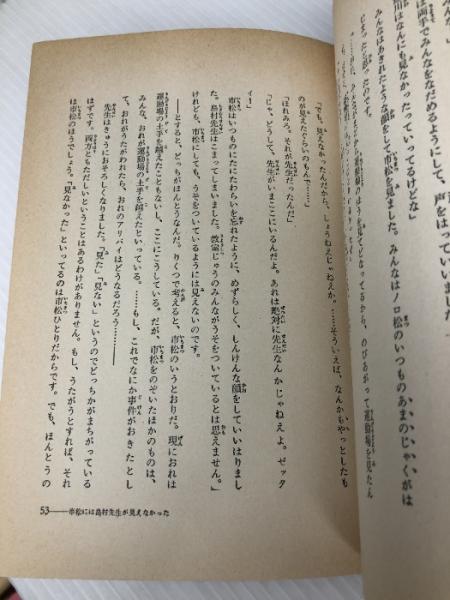 みんな。」
は両手でみんなをなだめるようにして、声をはっていいました
川はなんにも見なかったっていってるけどな」
みんなはあきれたような顔をして市松を見ました。みんなはノロ松のいつものあまのじゃくがは
じまったと思ったのです。
「でも、見えなかったんだから、しょうねえじゃねえか。……そういえば、なんかもやっとしたも
のが見えたぐらいのもんで……」
「ほれみろ。それが先生だったんだ」
「じゃ、どうして、先生がいまここにいるんだよ。あれは絶対に先生なんかじゃねえよ。ゼッタ
イ！」
市松はいつものにたにたわらいを忘れたように、めずらしく、しんけんな顔をしていいはりまし
た。島村先生はこまってしまいました。教室じゅうのみんながうそをついているとは思えません。
けれども、市松にしても、うそをついているようには見えないのです。
――とすると、どっちがほんとうなんだ。りくつで考えると、市松のいうとおりだ。現におれは
運動場の土手を越えたこともないし、ここにこうしている。だが、市松をのぞいたほかのものは、
みんな、おれが運動場の土手を越えたといっている。……もし、これでなにか事件がおきたとし
て、おれがうたがわれたら、おれのアリバイはどうなるだろう――
先生はきゅうにおそろしくなりました。「見た」「見ない」というのでどっちかがまちがっている
はずです。両方ともただしいということはあるわけがありません。もし、うたがうとすれば、それ
は市松のほうでしょう。「見なかった」といってるのは市松ひとりだからです。でも、ほんとうの
53――市松には島村先生が見えなかった